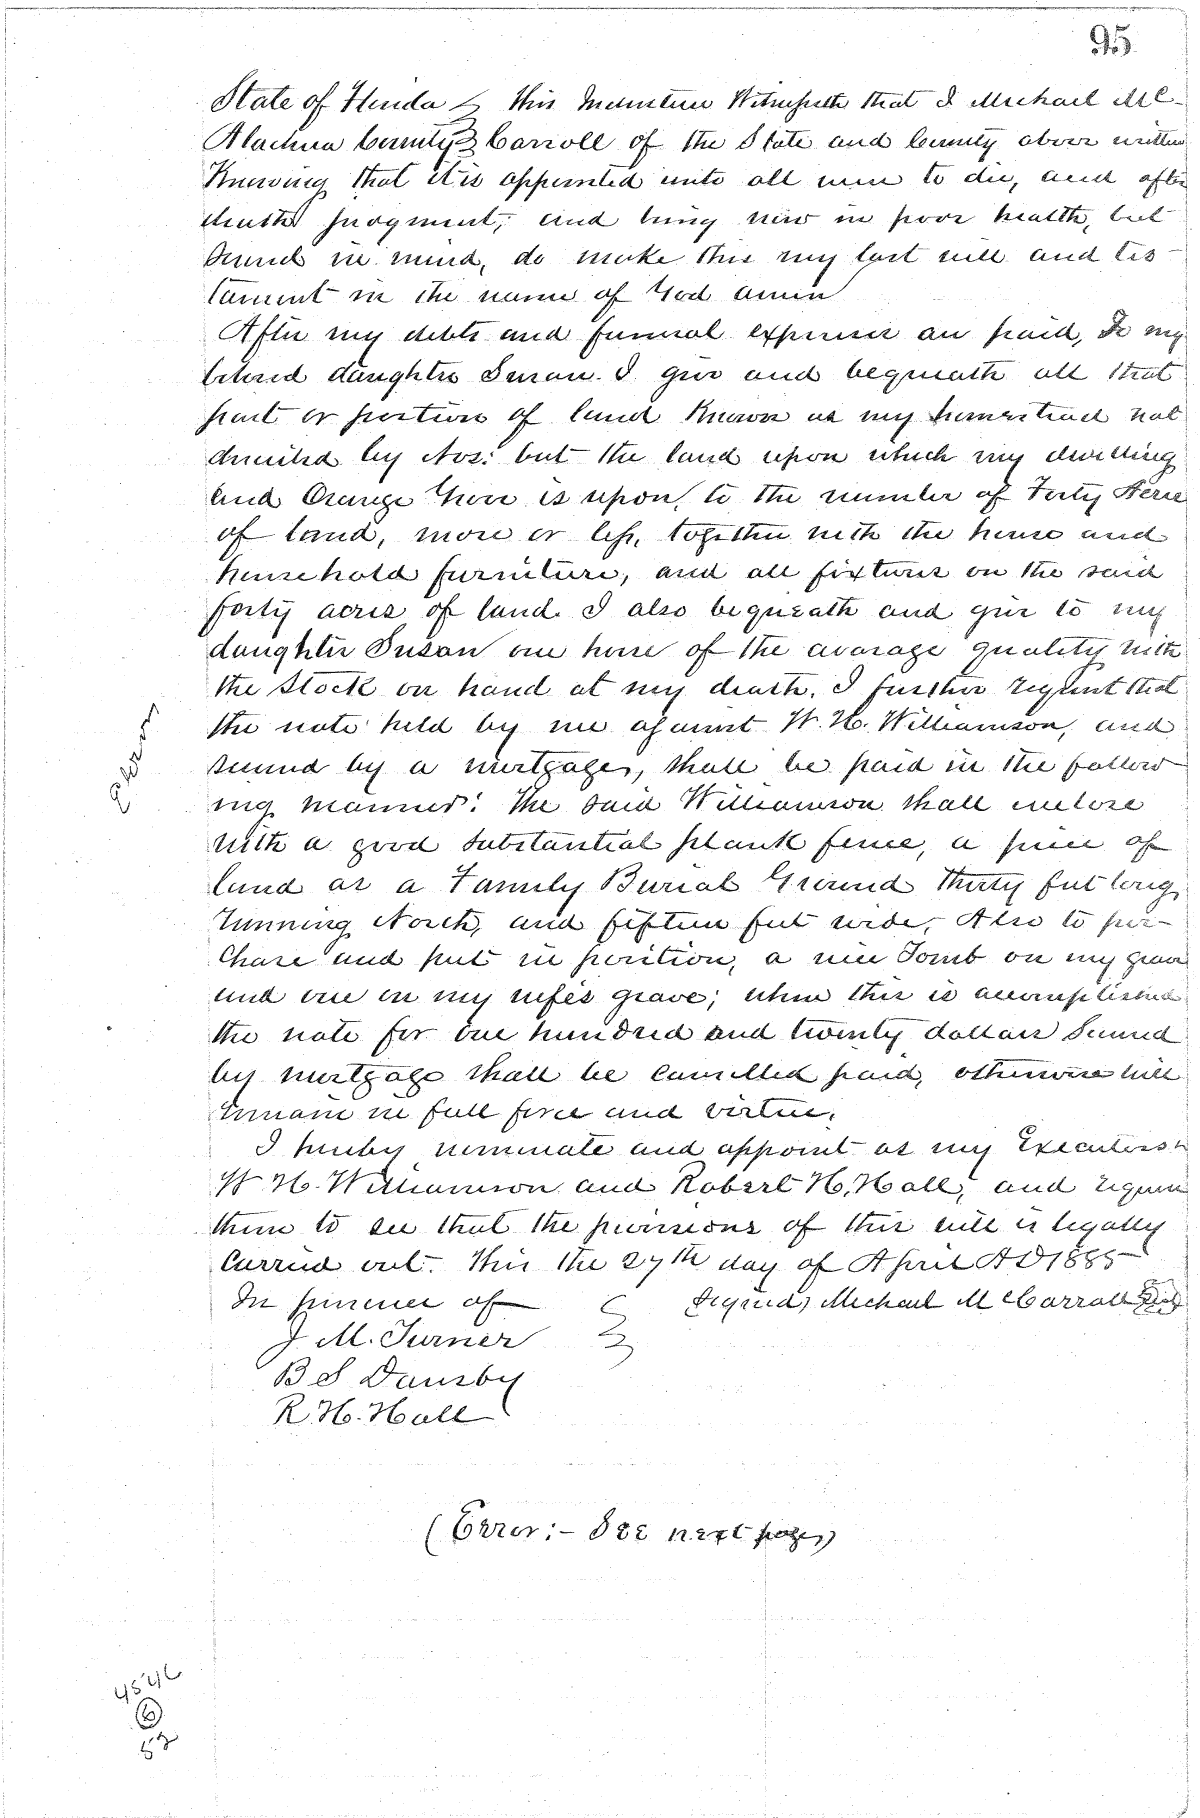 95
State of Florida } This Indenture Witnesseth that I Michael Mc-
Alachua County } Carroll of the State and County above written
Knowing that it is appointed unto all men to die, and after
death judgment; and being now in poor health, but
sound in mind, do make this my last will and tes-
tament in the name of God amen
After my debts and funeral expenses are paid, To my
beloved daughter Susan. I give and bequeath all that
part or portion of land Known as my homestead not
described by Nos: but the land upon which my dwelling
and Orange Grove is upon, to the number of Forty Acres
of land, more or less, together with the house and
household furniture, and all fixtures on the said
forty acres of land. I also bequeath and give to my
daughter Susan one horse of the avarage quality with
the Stock on hand at my death. I further request that
the note held by me against W. H. Williamson, and
secured by a mortgage, shall be paid in the follow-
ing manner: The said Williamson shall inclose
with a good substantial plank fence, a piece of
land as a Family Burial Ground Thirty feet long,
running North, and fifteen feet wide, Also to pur-
chase and put in position, a nice Tomb on my grave
and one on my wife's grave; when this is accomplished
the note for one hundred and twenty dollars Secured
by mortgage shall be cancelled paid, otherwise will
remain in full force and virtue.
I hereby nominate and appoint as my Executors
W H. Williamson and Robert H. Hall, and require
them to see that the provisions of this will is legally
Carried out. This the 27th day of April A D 1885
In presence of } Signed, Michael McCarroll Seal
J M. Turner
B S Dansby
R. H. Hall
(Error:- See next page)
6